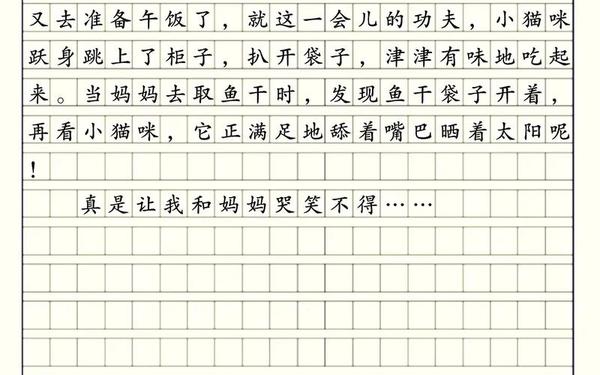 又去准备午饭了，就这一会儿的功夫，小猫咪
跃身跳上了柜子，扒开袋子，津津有味地吃起
来。当妈妈去取鱼干时，发现鱼干袋子开着，
再看小猫咪，它正满足地舔着嘴巴晒着太阳呢
！
真是让我和妈妈哭笑不得……